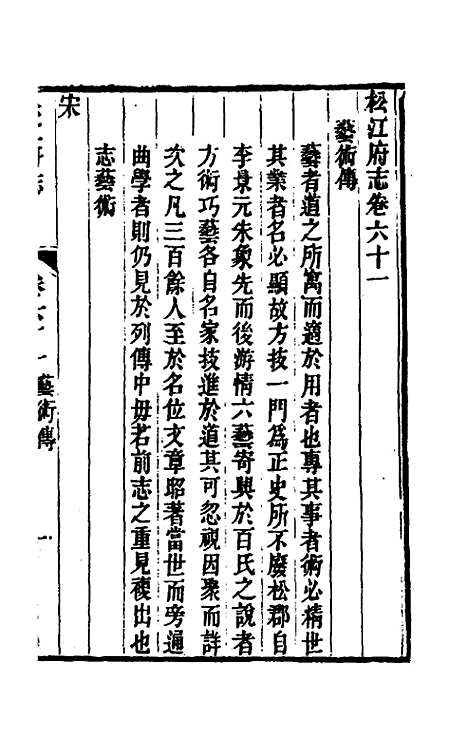 松江府志卷六十一
藝術傳
藝者道之所寓而適於用者也專其事者術必精世
其業者名必顯故方技一門爲正史所不廢松郡自
李景元朱象先而後游情六藝寄興於百氏之說者
方術巧藝各自名家技進於道其可忽視因彚而詳
次之凡三百餘人至於名位文章昭著當世而旁通
曲學者則仍見於列傳中毋若前志之重見複出也
志藝術
宋
府志
藝術傳
一